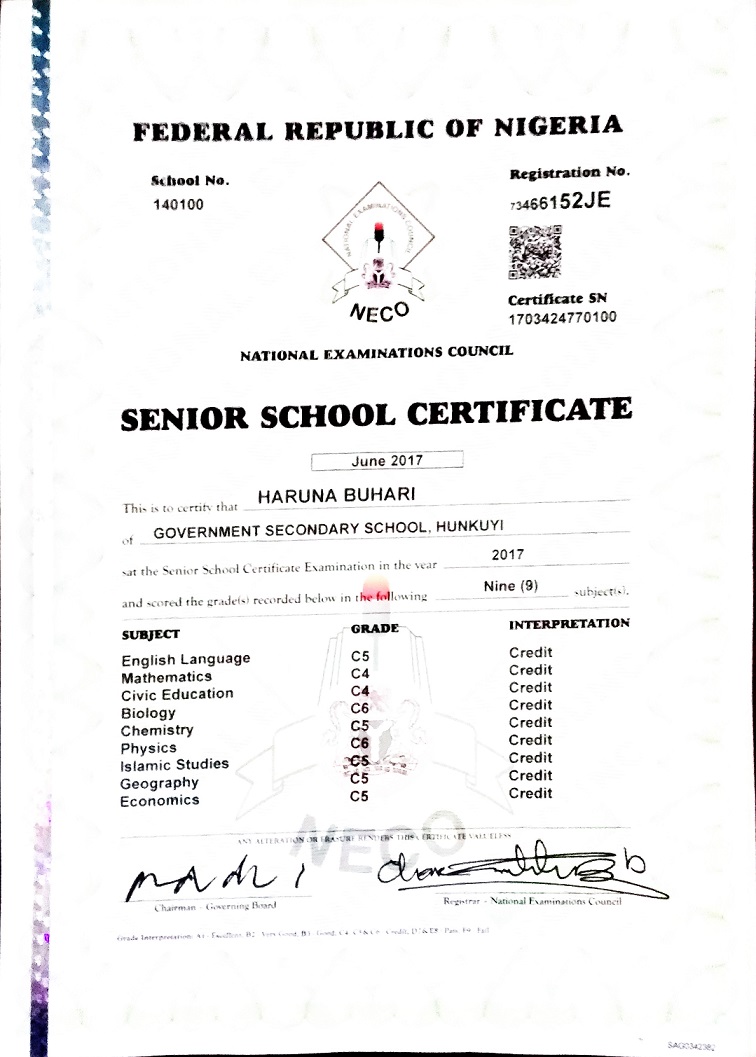 FEDERAL REPUBLIC OF NIGERIA
School No.
140100
Registration No.
73466152JE
NATIONAL EXAMINATIONS COUNCIL
NECO
Certificate SN
1703424770100
NATIONAL EXAMINATIONS COUNCIL
SENIOR SCHOOL CERTIFICATE
June 2017
This is to certify that HARUNA BUHARI
of GOVERNMENT SECONDARY SCHOOL, HUNKUYI
sat the Senior School Certificate Examination in the year 2017
and scored the grade(s) recorded below in the following Nine (9) subject(s).
SUBJECT GRADE INTERPRETATION
English Language C5 Credit
Mathematics C4 Credit
Civic Education C4 Credit
Biology C6 Credit
Chemistry C5 Credit
Physics C6 Credit
Islamic Studies C5 Credit
Geography C5 Credit
Economics C5 Credit
NECO
ANY ALTERATION OR ERASURE RENDERS THIS CERTIFICATE VALUELESS
Chairman - Governing Board
Registrar - National Examinations Council
Grade Interpretation: A1 - Excellent, B2 - Very Good, B3 - Good, C4, C5 & C6 - Credit, D7 & E8 - Pass, F9 - Fail